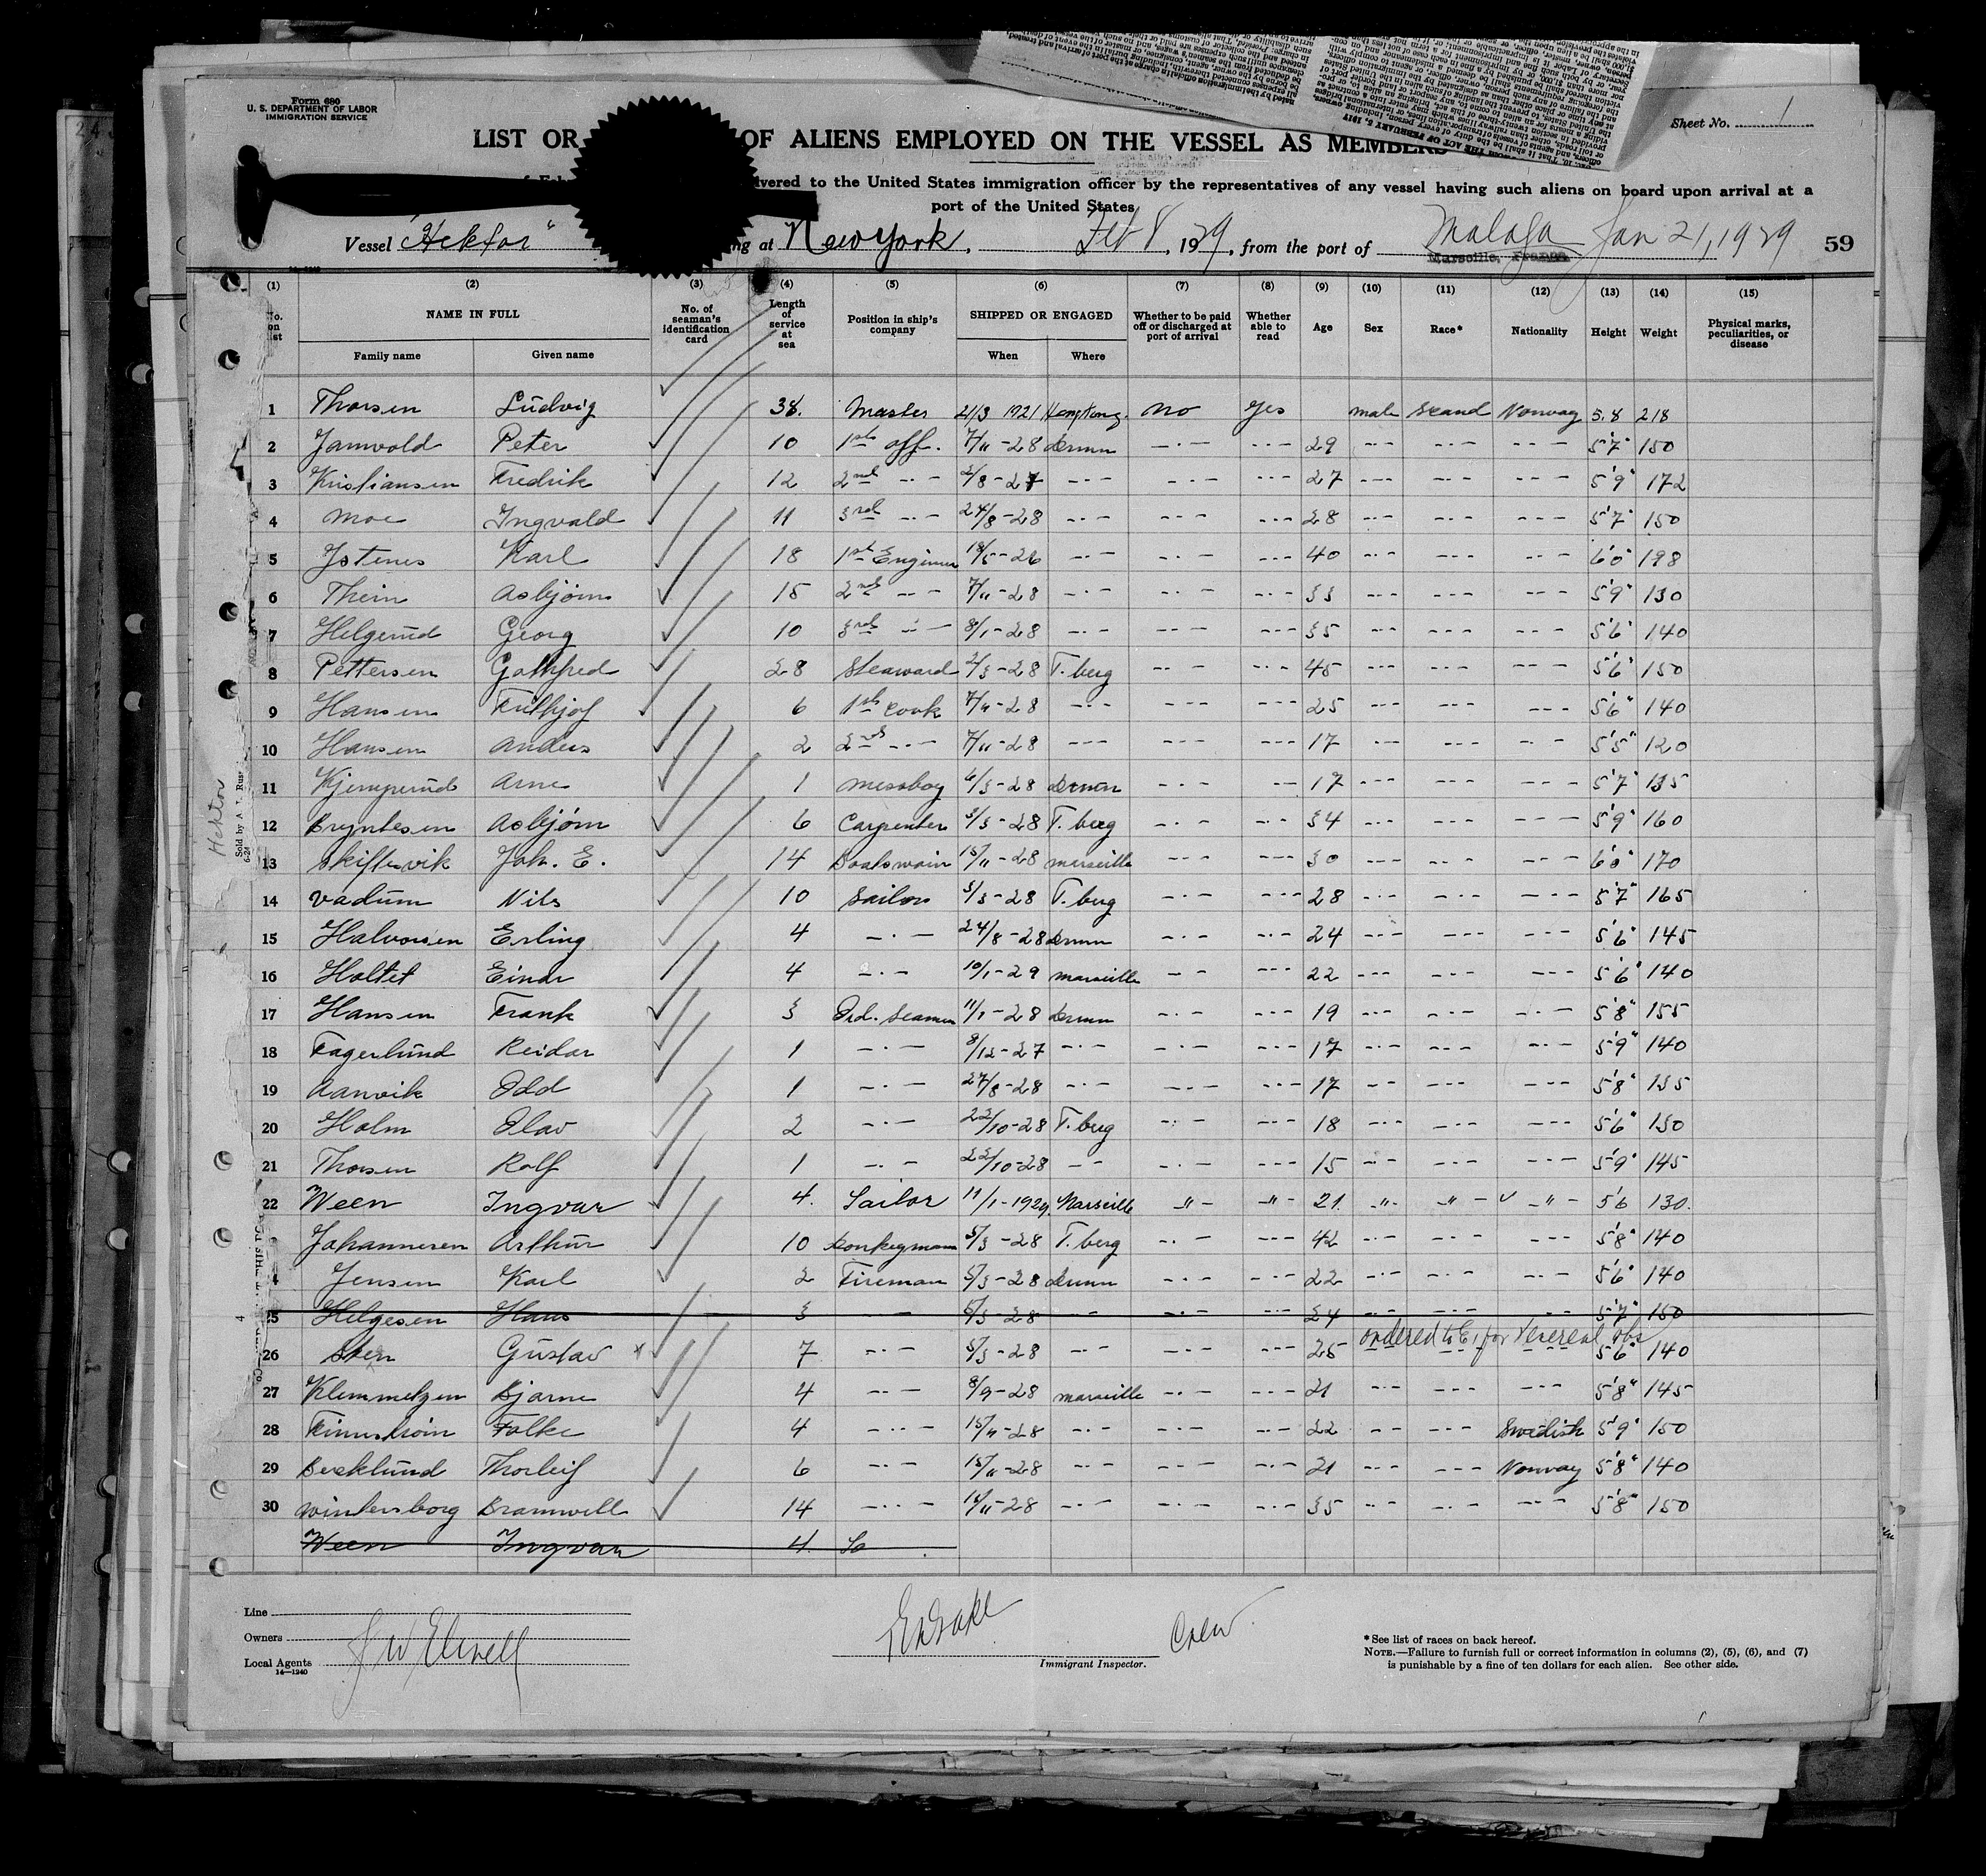 Form 680
U. S. DEPARTMENT OF LABOR
IMMIGRATION SERVICE
Sheet No. 1
LIST OR OF ALIENS EMPLOYED ON THE VESSEL AS MEMBERS
ivered to the United States immigration officer by the representatives of any vessel having such aliens on board upon arrival at a
port of the United States
Vessel "Hektor" ng at New York, Feb 8, 1929, from the port of Malaga Jan 21, 1929 59
Marseille, France
(1) (2) (3) (4) (5) (6) (7) (8) (9) (10) (11) (12) (13) (14) (15)
No. on list NAME IN FULL No. of seaman's identification card Length of service at sea Position in ship's company SHIPPED OR ENGAGED Whether to be paid off or discharged at port of arrival Whether able to read Age Sex Race* Nationality Height Weight Physical marks, peculiarities, or disease
Family name Given name When Where
1 Thorsen Ludvig 38. Master 21/3 1921 Hongkong. no yes male Scand Norway 5.8 218
2 Jamvold Peter 10 1st off. 7/11-28 -·- -·- 29 -·- -·- -·- 5'7" 150
3 Kristiansen Fredrik 12 2nd -·- 2/8-27 -·- -·- -·- 27 -·- -·- -·- 5'9" 172
4 Moe Ingvald 11 3rd -·- 24/8-28 -·- -·- -·- 28 -·- -·- -·- 5'7" 150
5 Karl 18 1st Engineer 18/5-26 -·- -·- -·- 40 -·- -·- -·- 6'0" 198
6 Thein Asbjörn 15 2nd -·- 7/11-28 -·- -·- -·- 33 -·- -·- -·- 5'9" 130
7 Helgerud Georg 10 3rd -·- 8/1-28 -·- -·- -·- 35 -·- -·- -·- 5'6" 140
8 Pettersen Gothfred 28 Steaward 2/3-28 T.berg -·- -·- 45 -·- -·- -·- 5'6" 150
9 Hansen Frithjof 6 1st cook 7/11-28 -·- -·- -·- 25 -·- -·- -·- 5'6" 140
10 Hansen Anders 2 2nd -·- 7/11-28 -·- -·- -·- 17 -·- -·- -·- 5'5" 120
11 Kjemperud Arne 1 messboy 6/3-28 -·- -·- 17 -·- -·- -·- 5'7" 135
12 Bryntesen Asbjörn 6 Carpenter 5/3-28 T.berg -·- -·- 34 -·- -·- -·- 5'9" 160
13 Skiftesvik Joh. E. 14 Boatswain 15/11-28 marseille -·- -·- 30 -·- -·- -·- 6'0" 170
14 Vadum Nils 10 Sailor 5/3-28 T.berg -·- -·- 28 -·- -·- -·- 5'7" 165
15 Halvorsen Erling 4 -·- 24/8-28 -·- -·- 24 -·- -·- -·- 5'6" 145
16 Holtet Einar 4 -·- 10/1-29 marseille -·- -·- 22 -·- -·- -·- 5'6" 140
17 Hansen Frank 3 Ord. Seaman 11/1-28 -·- -·- 19 -·- -·- -·- 5'8" 155
18 Fagerlund Reidar 1 -·- 8/12-27 -·- -·- -·- 17 -·- -·- -·- 5'9" 140
19 Aanvik Odd 1 -·- 27/8-28 -·- -·- -·- 17 -·- -·- -·- 5'8" 135
20 Holm Olav 2 -·- 22/10-28 T.berg -·- -·- 18 -·- -·- -·- 5'6" 130
21 Thorsen Rolf 1 -·- 22/10-28 -·- -·- -·- 15 -·- -·- -·- 5'9" 145
22 Ween Ingvar 4. Sailor 11/1-1929. Marseille -"- -"- 21. -"- -"- -"- 5'6 130.
Johannesen Arthur 10 Donkeyman 5/3-28 T.berg -·- -·- 42 -·- -·- -·- 5'8" 140
4 Jensen Karl 2 Fireman 5/3-28 -·- -·- 22 -·- -·- -·- 5'6" 140
25 Helgesen Hans 3 -·- 5/3-28 -·- -·- -·- 24 -·- -·- -·- 5'7" 150
ordered to E.I for Venereal obs
26 Sten Gustav x 7 -·- 5/3-28 -·- -·- -·- 25 -·- -·- -·- 5'6" 140
27 Klemmetzen Bjarne 4 -·- 8/9-28 marseille -·- -·- 21 -·- -·- -·- 5'8" 145
28 Folke 4 -·- 15/11-28 -·- -·- -·- 22 -·- -·- Swedish 5'9" 150
29 Berklund Thorleif 6 -·- 15/11-28 -·- -·- -·- 21 -·- -·- Norway 5'8" 140
30 Wintersborg Bramwell 14 -·- 16/11-28 -·- -·- -·- 35 -·- -·- -·- 5'8" 150
Ween Ingvar 4. Sa
Hektor
Sold by A
6-24
Line
Owners
Local Agents J W Elwell
14—1240
Immigrant Inspector.
Crew
*See list of races on back hereof.
NOTE.—Failure to furnish full or correct information in columns (2), (5), (6), and (7)
is punishable by a fine of ten dollars for each alien. See other side.